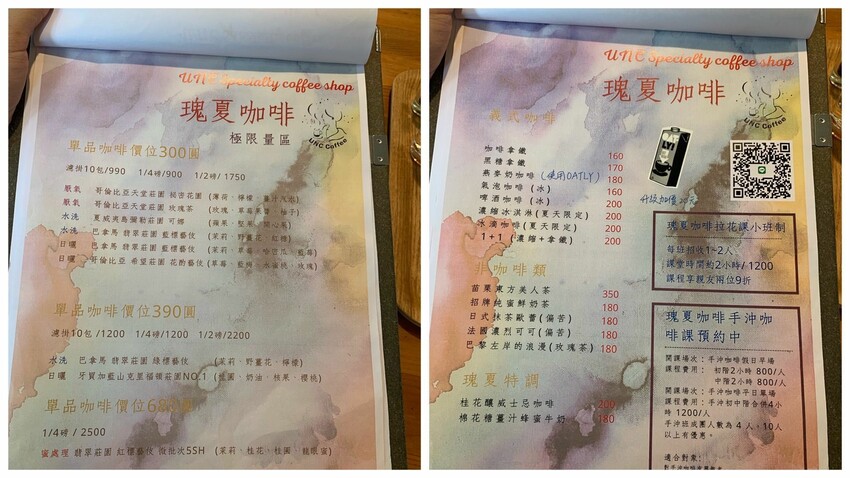 UNC Specialty coffee shop
瑰夏咖啡
極限量區
UNC Coffee
單品咖啡價位300圓
濾掛10包/990 1/4磅/900 1/2磅/ 1750
厭氧 哥倫比亞天堂莊園 祕密花園 (薄荷、檸檬、薑汁汽泡)
厭氧 哥倫比亞天堂莊園 玫瑰茶 (玫瑰、草莓果醬、柚子)
水洗 夏威夷島彌勒莊園 可娜
水洗 巴拿馬 翡翠莊園 藍標藝伎 (茉莉、野薑花、紅糖)
日曬 巴拿馬 翡翠莊園 藍標藝伎
日曬 哥倫比亞 希望莊園 花酌藝伎 (草莓、藍莓、水蜜桃、玫瑰)
單品咖啡價位390圓
濾掛10包 /1200 1/4磅/1200 1/2磅/2200
水洗 巴拿馬 翡翠莊園 綠標藝伎 (茉莉、野薑花、檸檬)
日曬 牙買加藍山克里福頓莊園NO.1 (桂圓、奶油、核果、櫻桃)
單品咖啡價位680圓
1/4磅 / 2500
蜜處理 翡翠莊園 紅標藝伎 微批次5SH (茉莉、桂花、桂圓、龍眼蜜)
UNC Specialty coffee shop
瑰夏咖啡
UNC Coffee
義式咖啡
咖啡拿鐵 160
黑糖拿鐵 170
燕麥奶咖啡 (使用OATLY) 180
氣泡咖啡 (冰) 160
啤酒咖啡 (冰) 200
濃縮冰淇淋(夏天限定) 200
冰滴咖啡(夏天限定) 200
1+1 (濃縮+拿鐵) 200
非咖啡類
苗栗東方美人茶 350
招牌純蜜鮮奶茶 180
日式抹茶歐蕾(偏苦) 180
法國濃烈可可(偏苦) 180
巴黎左岸的浪漫(玫瑰茶) 180
瑰夏特調
桂花釀威士忌咖啡 200
棉花糖薑汁蜂蜜牛奶 180
瑰夏咖啡拉花課小班制
每班招收1~2人
課堂時間約2小時/ 1200
課程享親友兩位9折
瑰夏咖啡手沖咖
啡課預約中
開課場次：手沖咖啡假日早場
課程費用： 初階2小時 800/人
中階2小時 800/人
開課場次：手沖咖啡平日單場
課程費用：手沖初中階合併4小
時 1200/人
手沖班成團人數為 4 人、10人
以上有優惠。
適合對象：